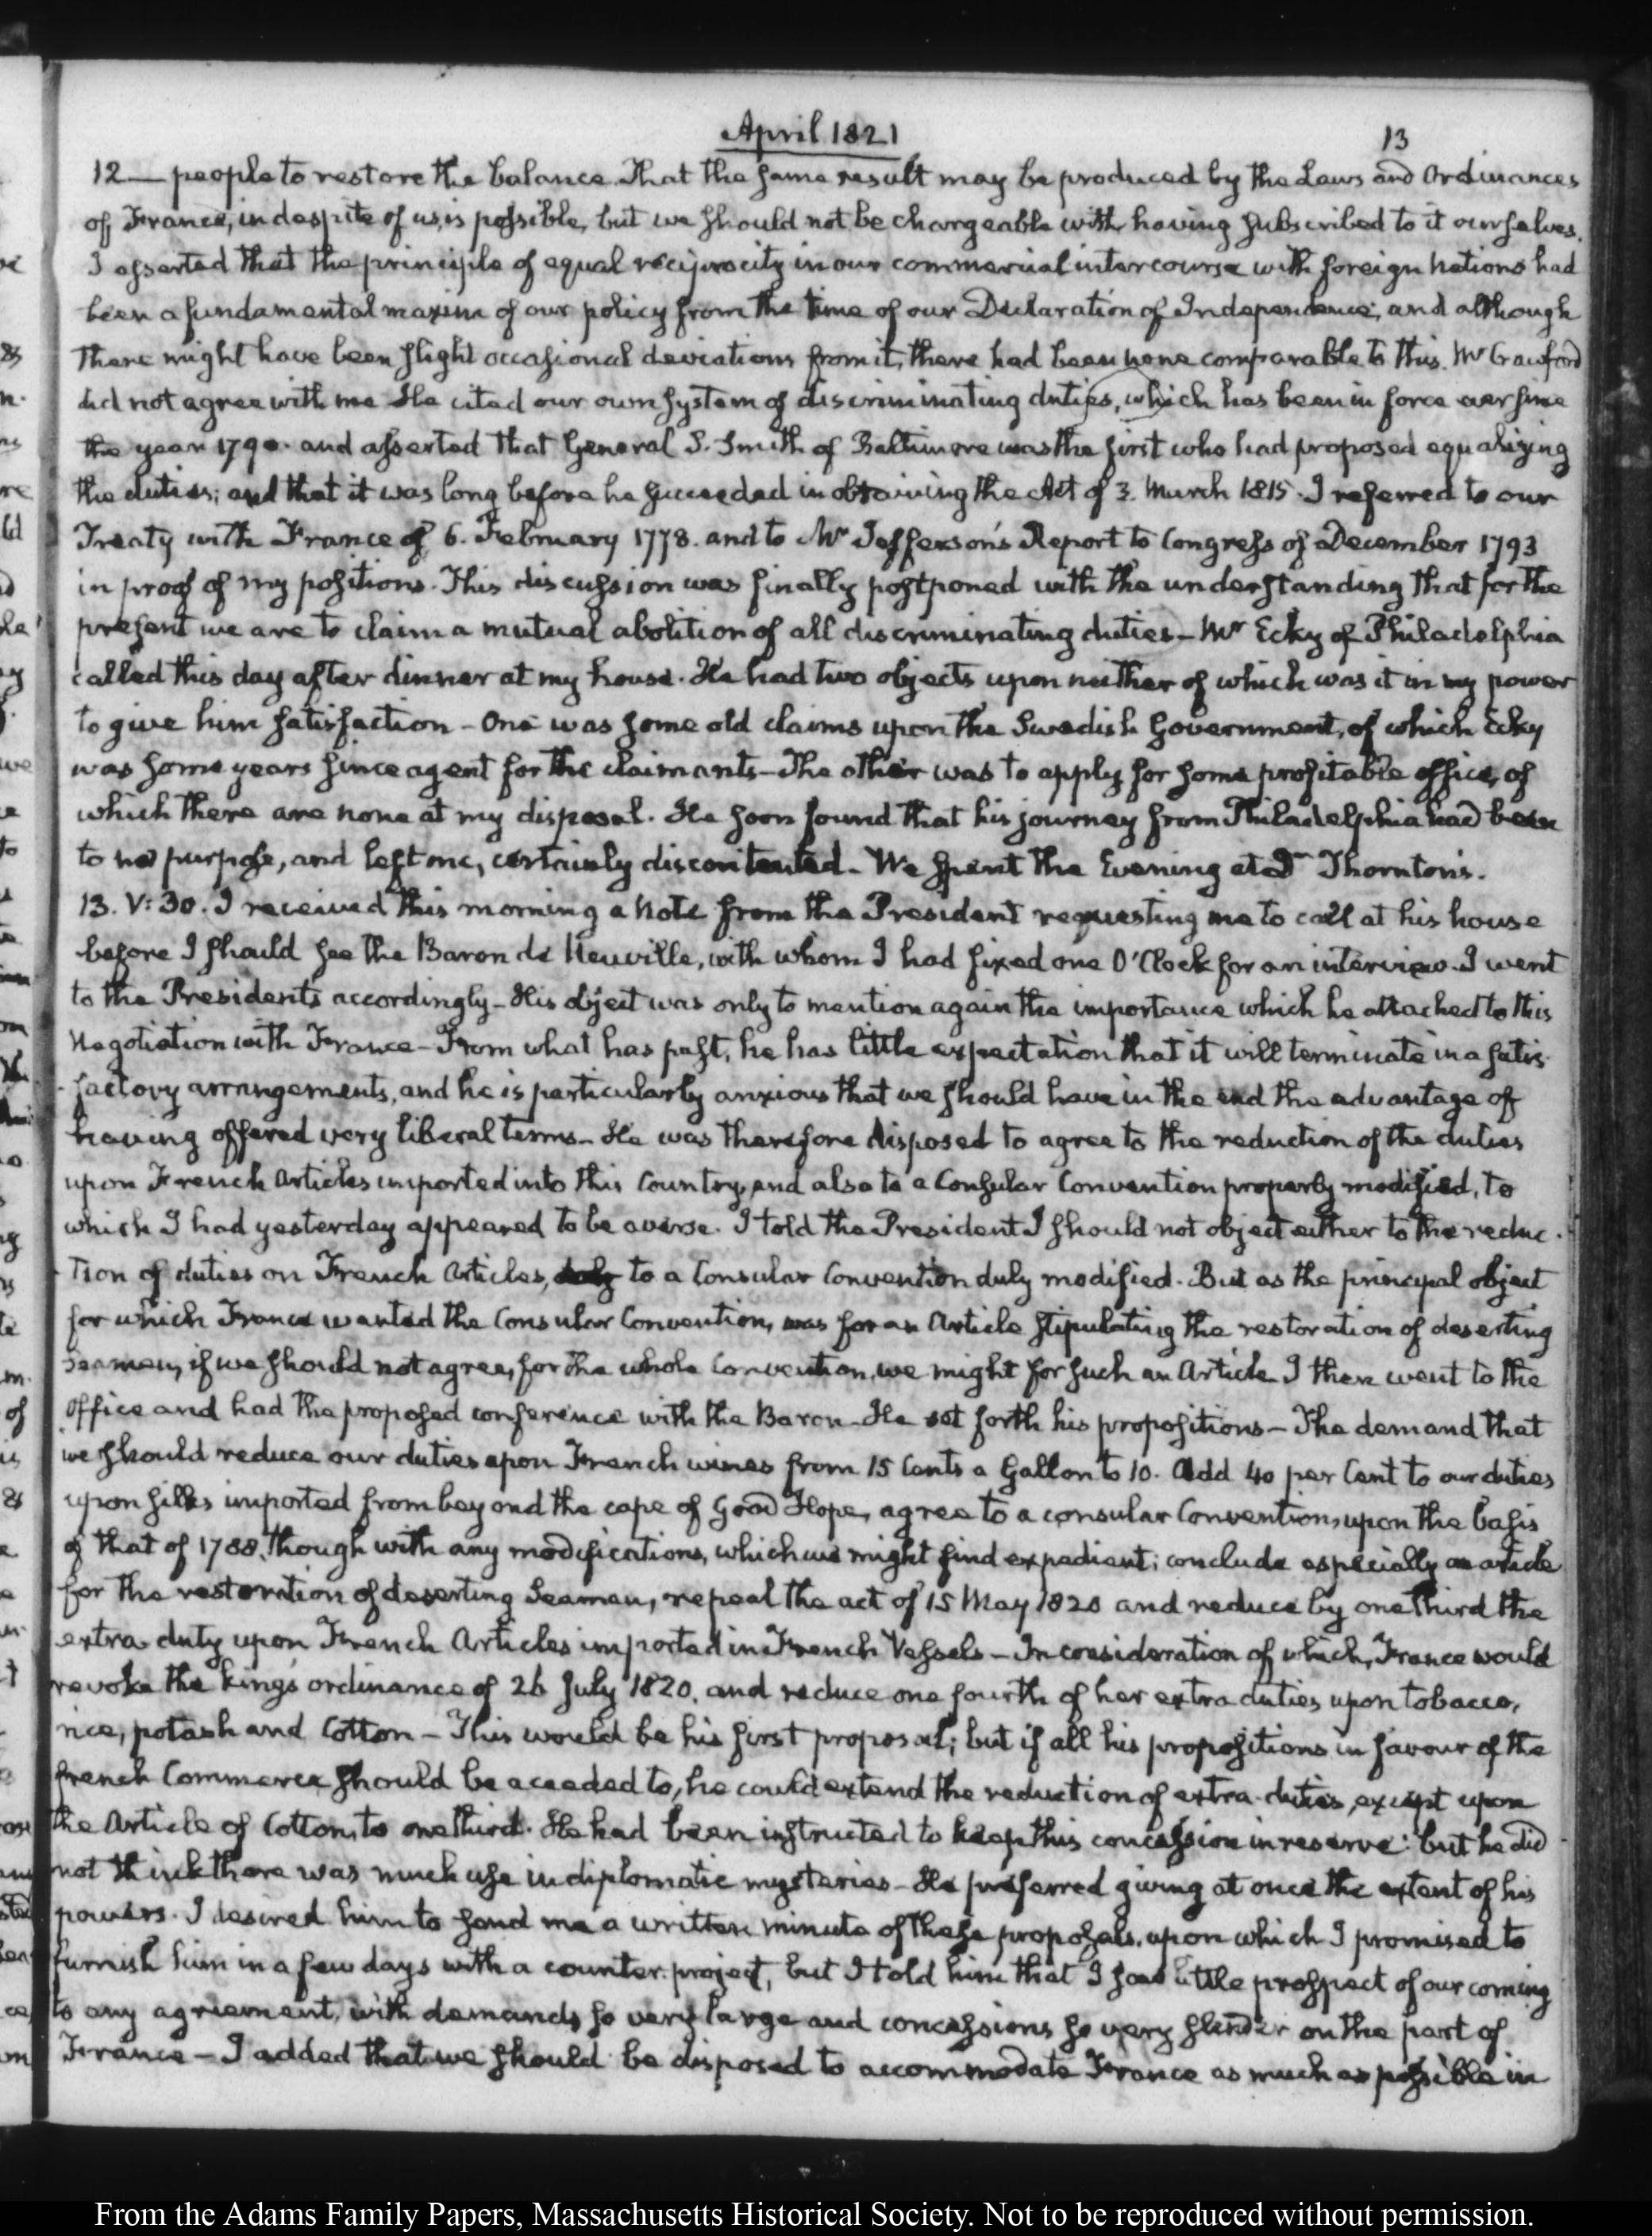 April 1821
13
12 — people to restore the balance. That the same result may be produced by the Laws and Ordinances
of France, in despite of us, is possible, but we should not be chargeable with having subscribed to it ourselves.
I asserted that the principle of equal reciprocity in our commercial intercourse with foreign Nations had
been a fundamental maxim of our policy from the time of our Declaration of Independence; and although
there might have been slight occasional deviations from it, there had been none comparable to this. Mr Crawford
did not agree with me He cited our own system of discriminating duties, which has been in force ever since
the year 1790. and asserted that General S. Smith of Baltimore was the first who had proposed equalizing
the duties; and that it was long before he succeeded in obtaining the Act of 3. March 1815. I referred to our
Treaty with France of 6. February 1778. and to Mr Jefferson's Report to Congress of December 1793
in proof of my positions. This discussion was finally postponed with the understanding that for the
present we are to claim a mutual abolition of all discriminating duties – Mr Ecky of Philadelphia
called this day after dinner at my house. He had two objects upon neither of which was it in my power
to give him satisfaction – One was some old claims upon the Swedish Government, of which Ecky
was some years since agent for the claimants – The other was to apply for some profitable office, of
which there are none at my disposal. He soon found that his journey from Philadelphia had been
to no purpose, and left me, certainly discontented – We spent the Evening at Dr Thornton's.
13. V: 30. I received this morning a Note from the President requesting me to call at his house
before I should see the Baron de Neuville, with whom I had fixed one O'Clock for an interview. I went
to the Presidents accordingly – His object was only to mention again the importance which he attached to this
Negotiation with France – From what has past, he has little expectation that it will terminate in a satis-
factory arrangements, and he is particularly anxious that we should have in the end the advantage of
having offered very liberal terms – He was therefore disposed to agree to the reduction of the duties
upon French Articles imported into this Country, and also to a Consular Convention properly modified, to
which I had yesterday appeared to be averse. I told the President I should not object either to the reduc-
tion of duties on French Articles, to a Consular Convention duly modified. But as the principal object
for which France wanted the Consular Convention, was for an Article stipulating the restoration of deserting
seamen, if we should not agree, for the whole Convention, we might for such an Article. I then went to the
Office and had the proposed conference with the Baron – He set forth his propositions – The demand that
we should reduce our duties upon French wines from 15 Cents a Gallon to 10. Add 40 per Cent to our duties
upon silks imported from beyond the cape of Good Hope, agree to a consular Convention, upon the basis
of that of 1788, though with any modifications, which we might find expedient; conclude especially an article
for the restoration of deserting Seamen, repeal the act of 15 May 1820 and reduce by one third the
extra duty upon French Articles imported in French Vessels – In consideration of which, France would
revoke the king's ordinance of 26 July 1820, and reduce one fourth of her extra duties upon tobacco,
rice, potash and Cotton – This would be his first proposal; but if all his propositions in favour of the
french Commerce should be acceded to, he could extend the reduction of extra-duties, except upon
the Article of Cotton, to one third. He had been instructed to keep this concession in reserve: but he did
not think there was much use in diplomatic mysteries – He preferred giving at once the extent of his
powers. I desired him to send me a written minute of these proposals, upon which I promised to
furnish him in a few days with a counter-project, but I told him that I saw little prospect of our coming
to any agreement, with demands so very large and concessions so very slender on the part of
France – I added that we should be disposed to accommodate France as much as possible in
From the Adams Family Papers, Massachusetts Historical Society. Not to be reproduced without permission.